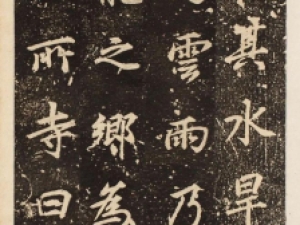 其水旱
雲雨乃
之鄉為
所寺曰